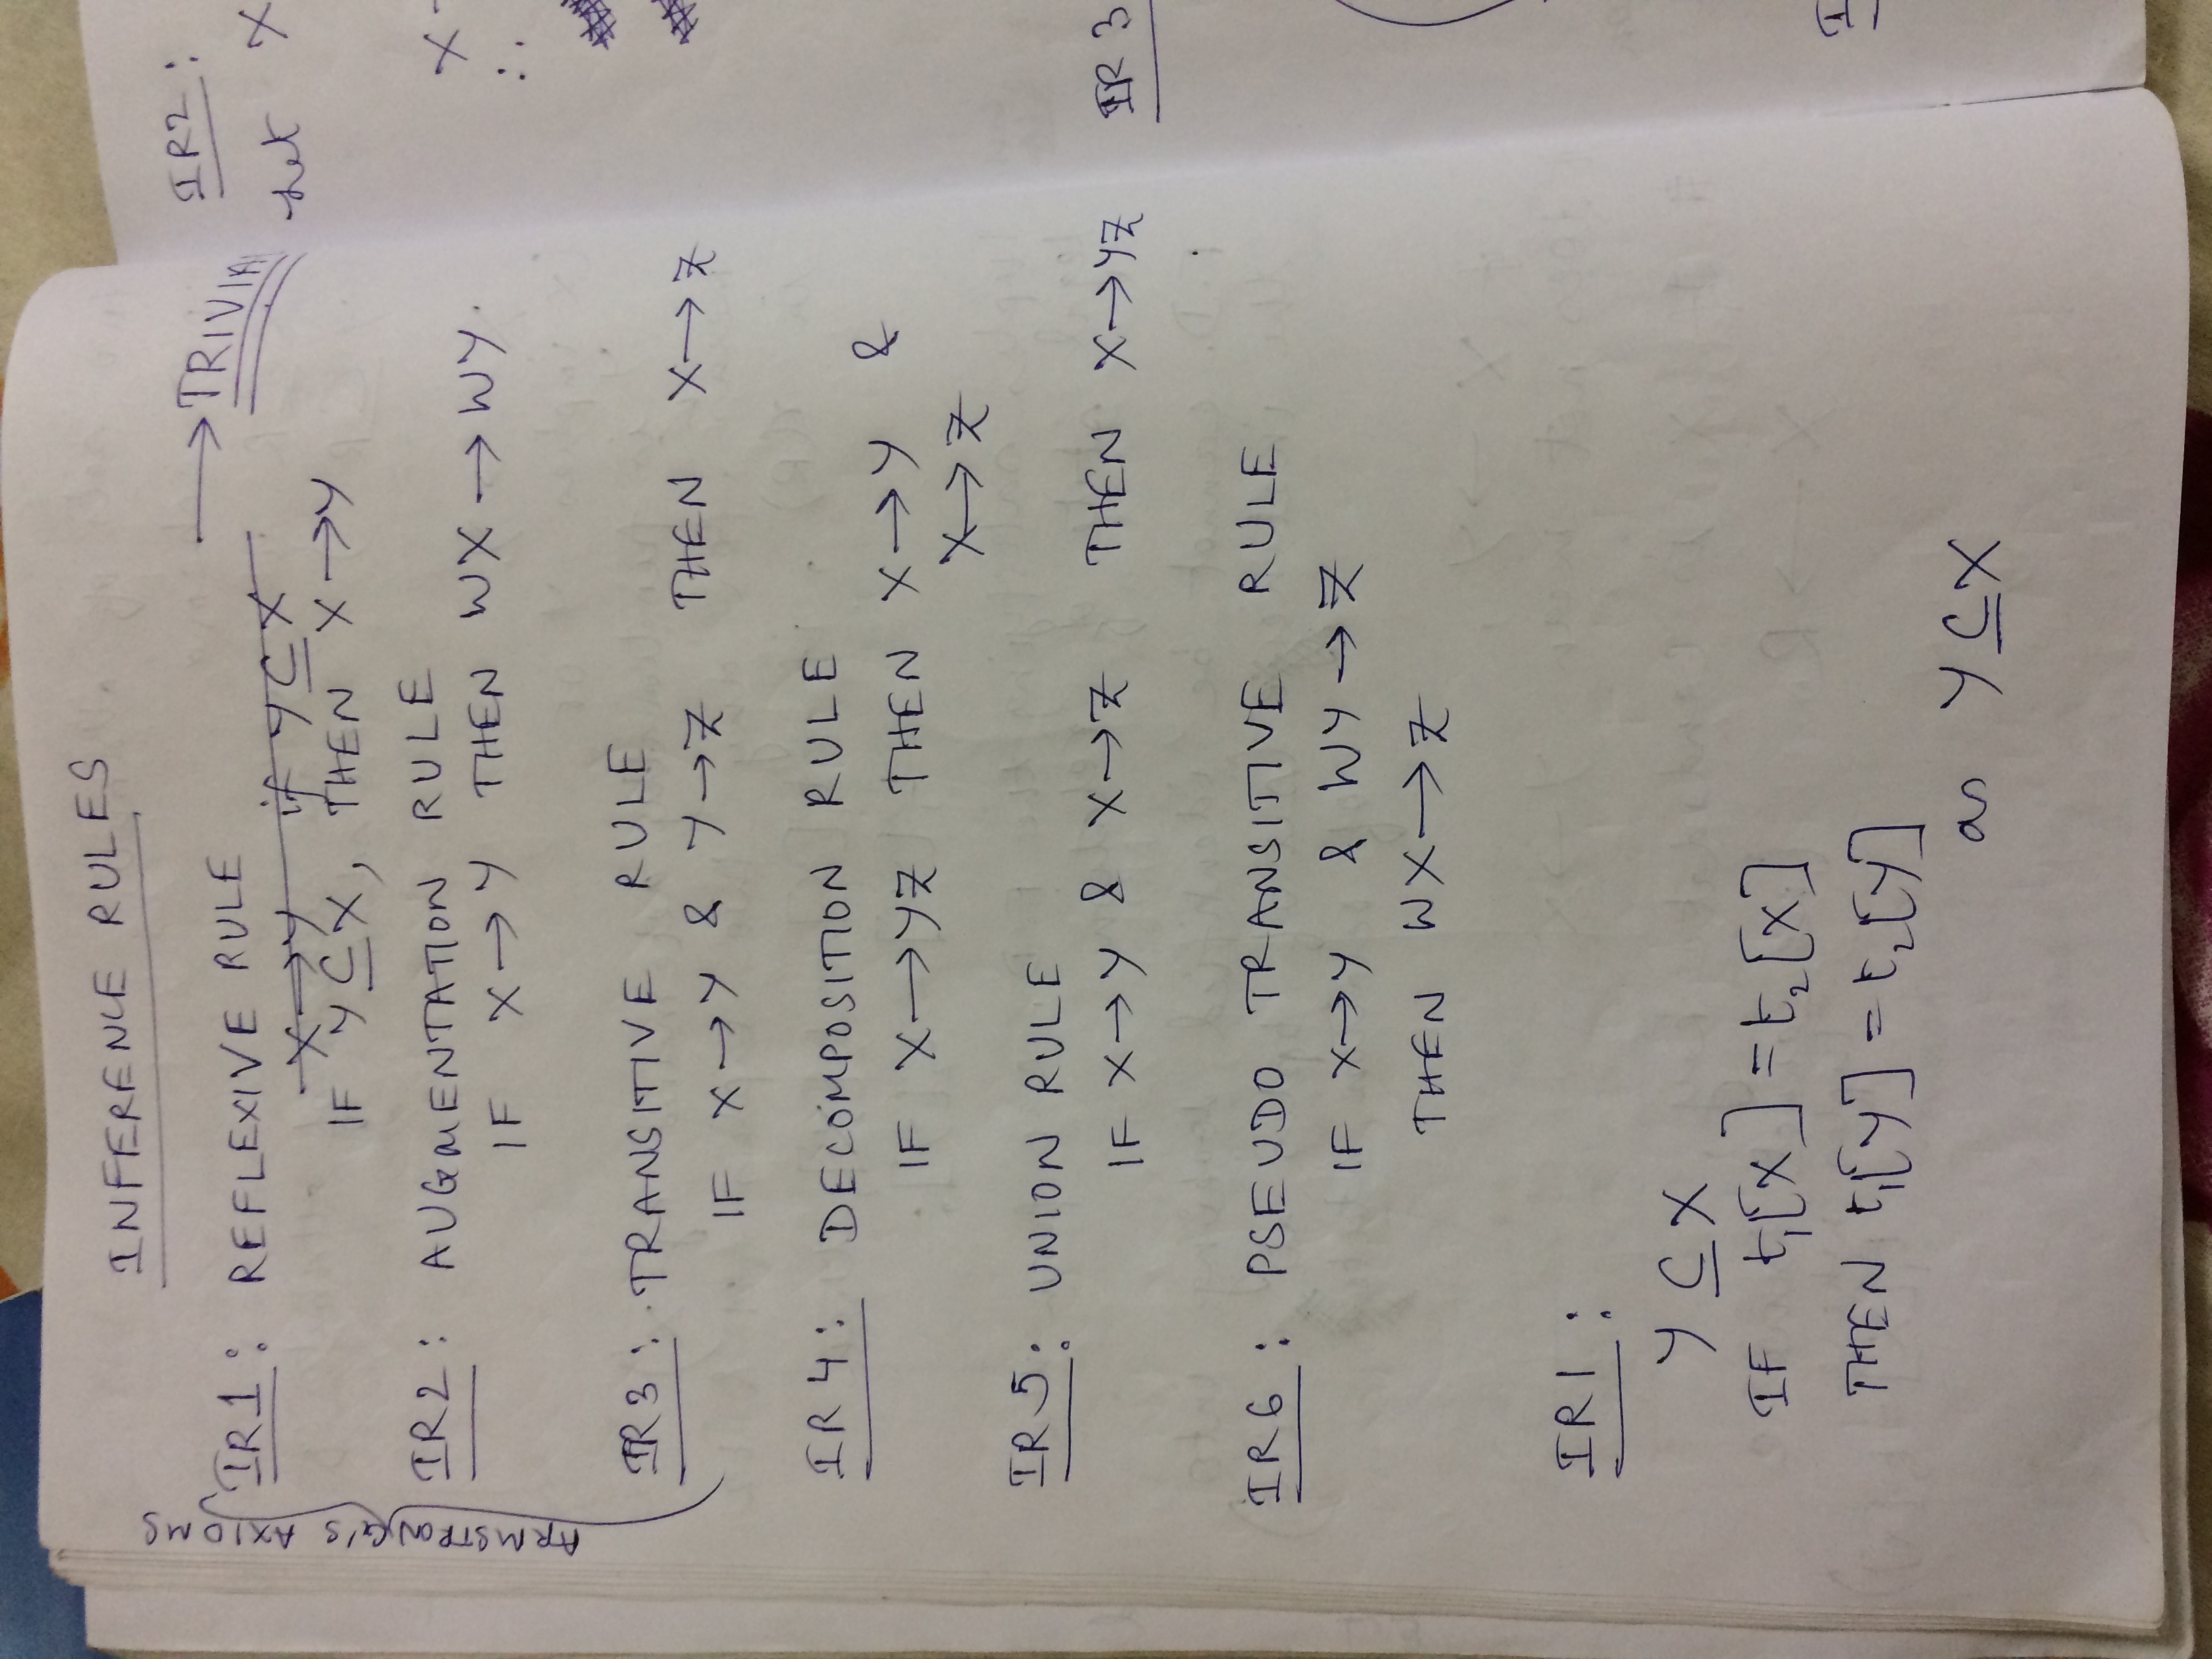 INFERENCE RULES
ARMSTRONG'S AXIOMS
IR1: REFLEXIVE RULE → TRIVIAL
X→Y if Y⊆X
IF Y⊆X, THEN X→Y
IR2: AUGMENTATION RULE
IF X→Y THEN WX→WY.
IR3: TRANSITIVE RULE
IF X→Y & Y→Z THEN X→Z
IR4: DECOMPOSITION RULE
IF X→YZ THEN X→Y &
X→Z
IR5: UNION RULE
IF X→Y & X→Z THEN X→YZ
IR6: PSEUDO TRANSITIVE RULE
IF X→Y & WY→Z
THEN WX→Z
IR1:
Y⊆X
IF t₁[X]=t₂[X]
THEN t₁[Y]=t₂[Y]
as Y⊆X
IR2:
Let X
X
∴
IR3